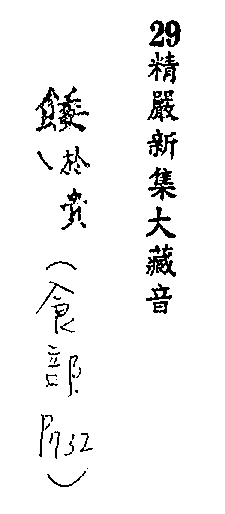 29精嚴新集大藏音
餧於貴（食部P732）